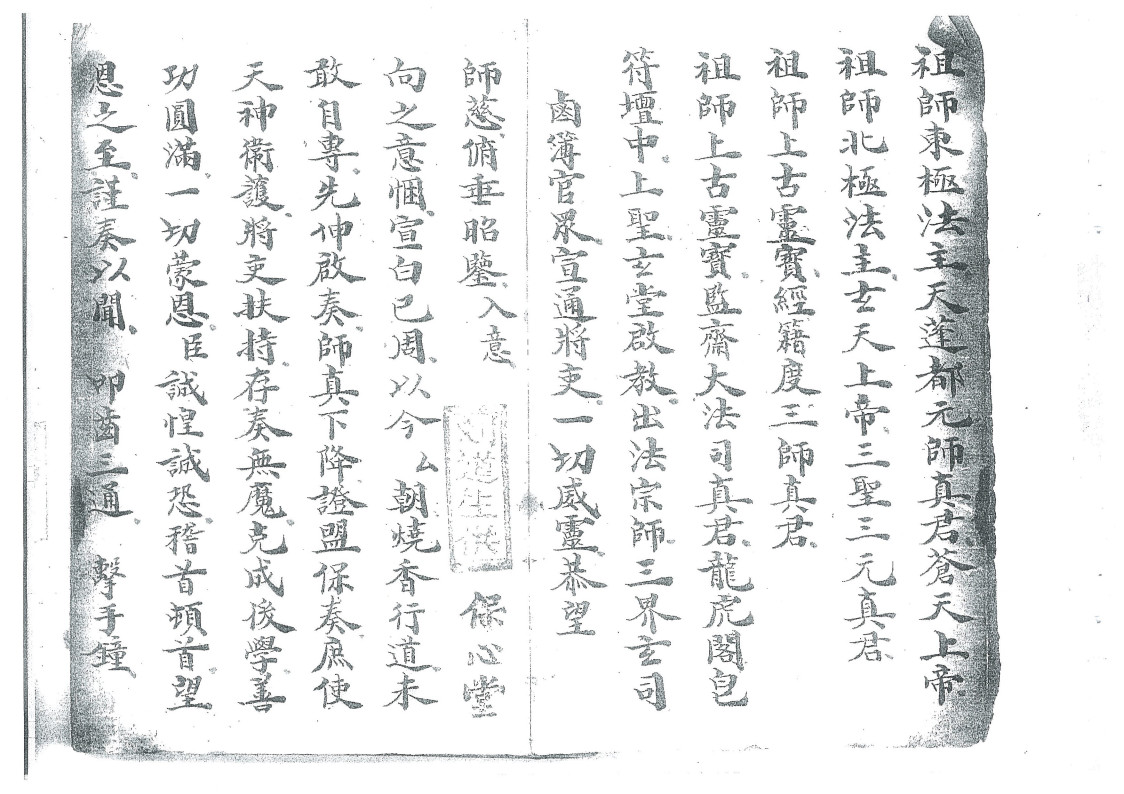 祖師東極法主、天蓬都元師真君、蒼天上帝、
祖師北極法主、玄天上帝、三聖三元真君、
祖師上古靈寶、經籍度三師真君、
祖師上古靈寶、監齋大法司真君、龍虎閣皂
符壇中上聖、玄堂啟教、出法宗師、三界玄司
鹵簿官眾、宣通將吏、一切威靈、恭望
師慈、俏垂昭鑒、入意 保心堂
向之意悃、宣白已周、以今ム朝燒香行道、未
敢自專、先伸啟奏、師真下降、證盟保奏、庶使
天神衛護、將吏扶持、存奏無魔、克成後學、善
功圓滿、一切蒙恩、臣誠惶誠恐、稽首頓首、望
恩之至、謹奏以聞、叩齒三通 擊手鐘、